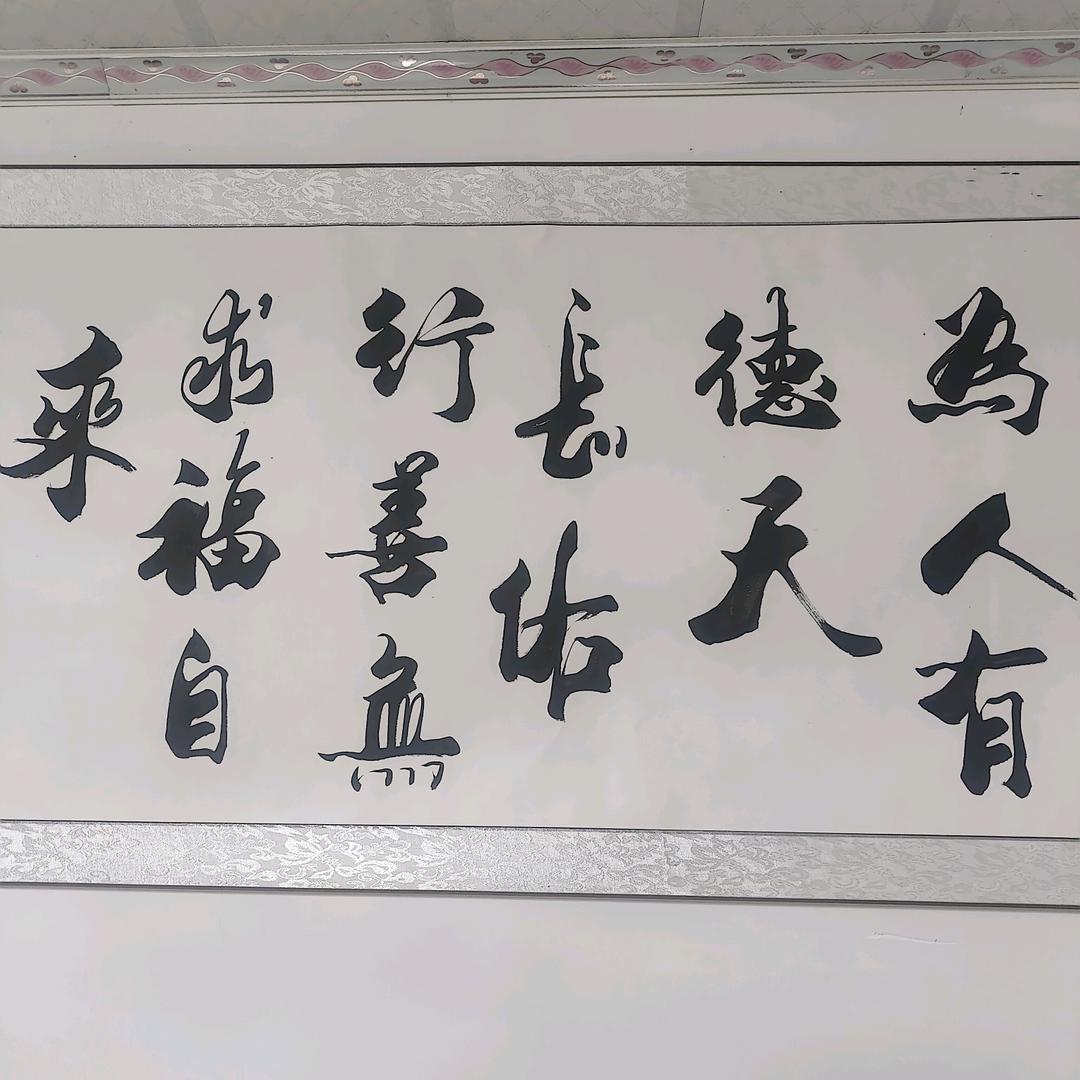 為人有
德天
長佑
行善無
求福自
來